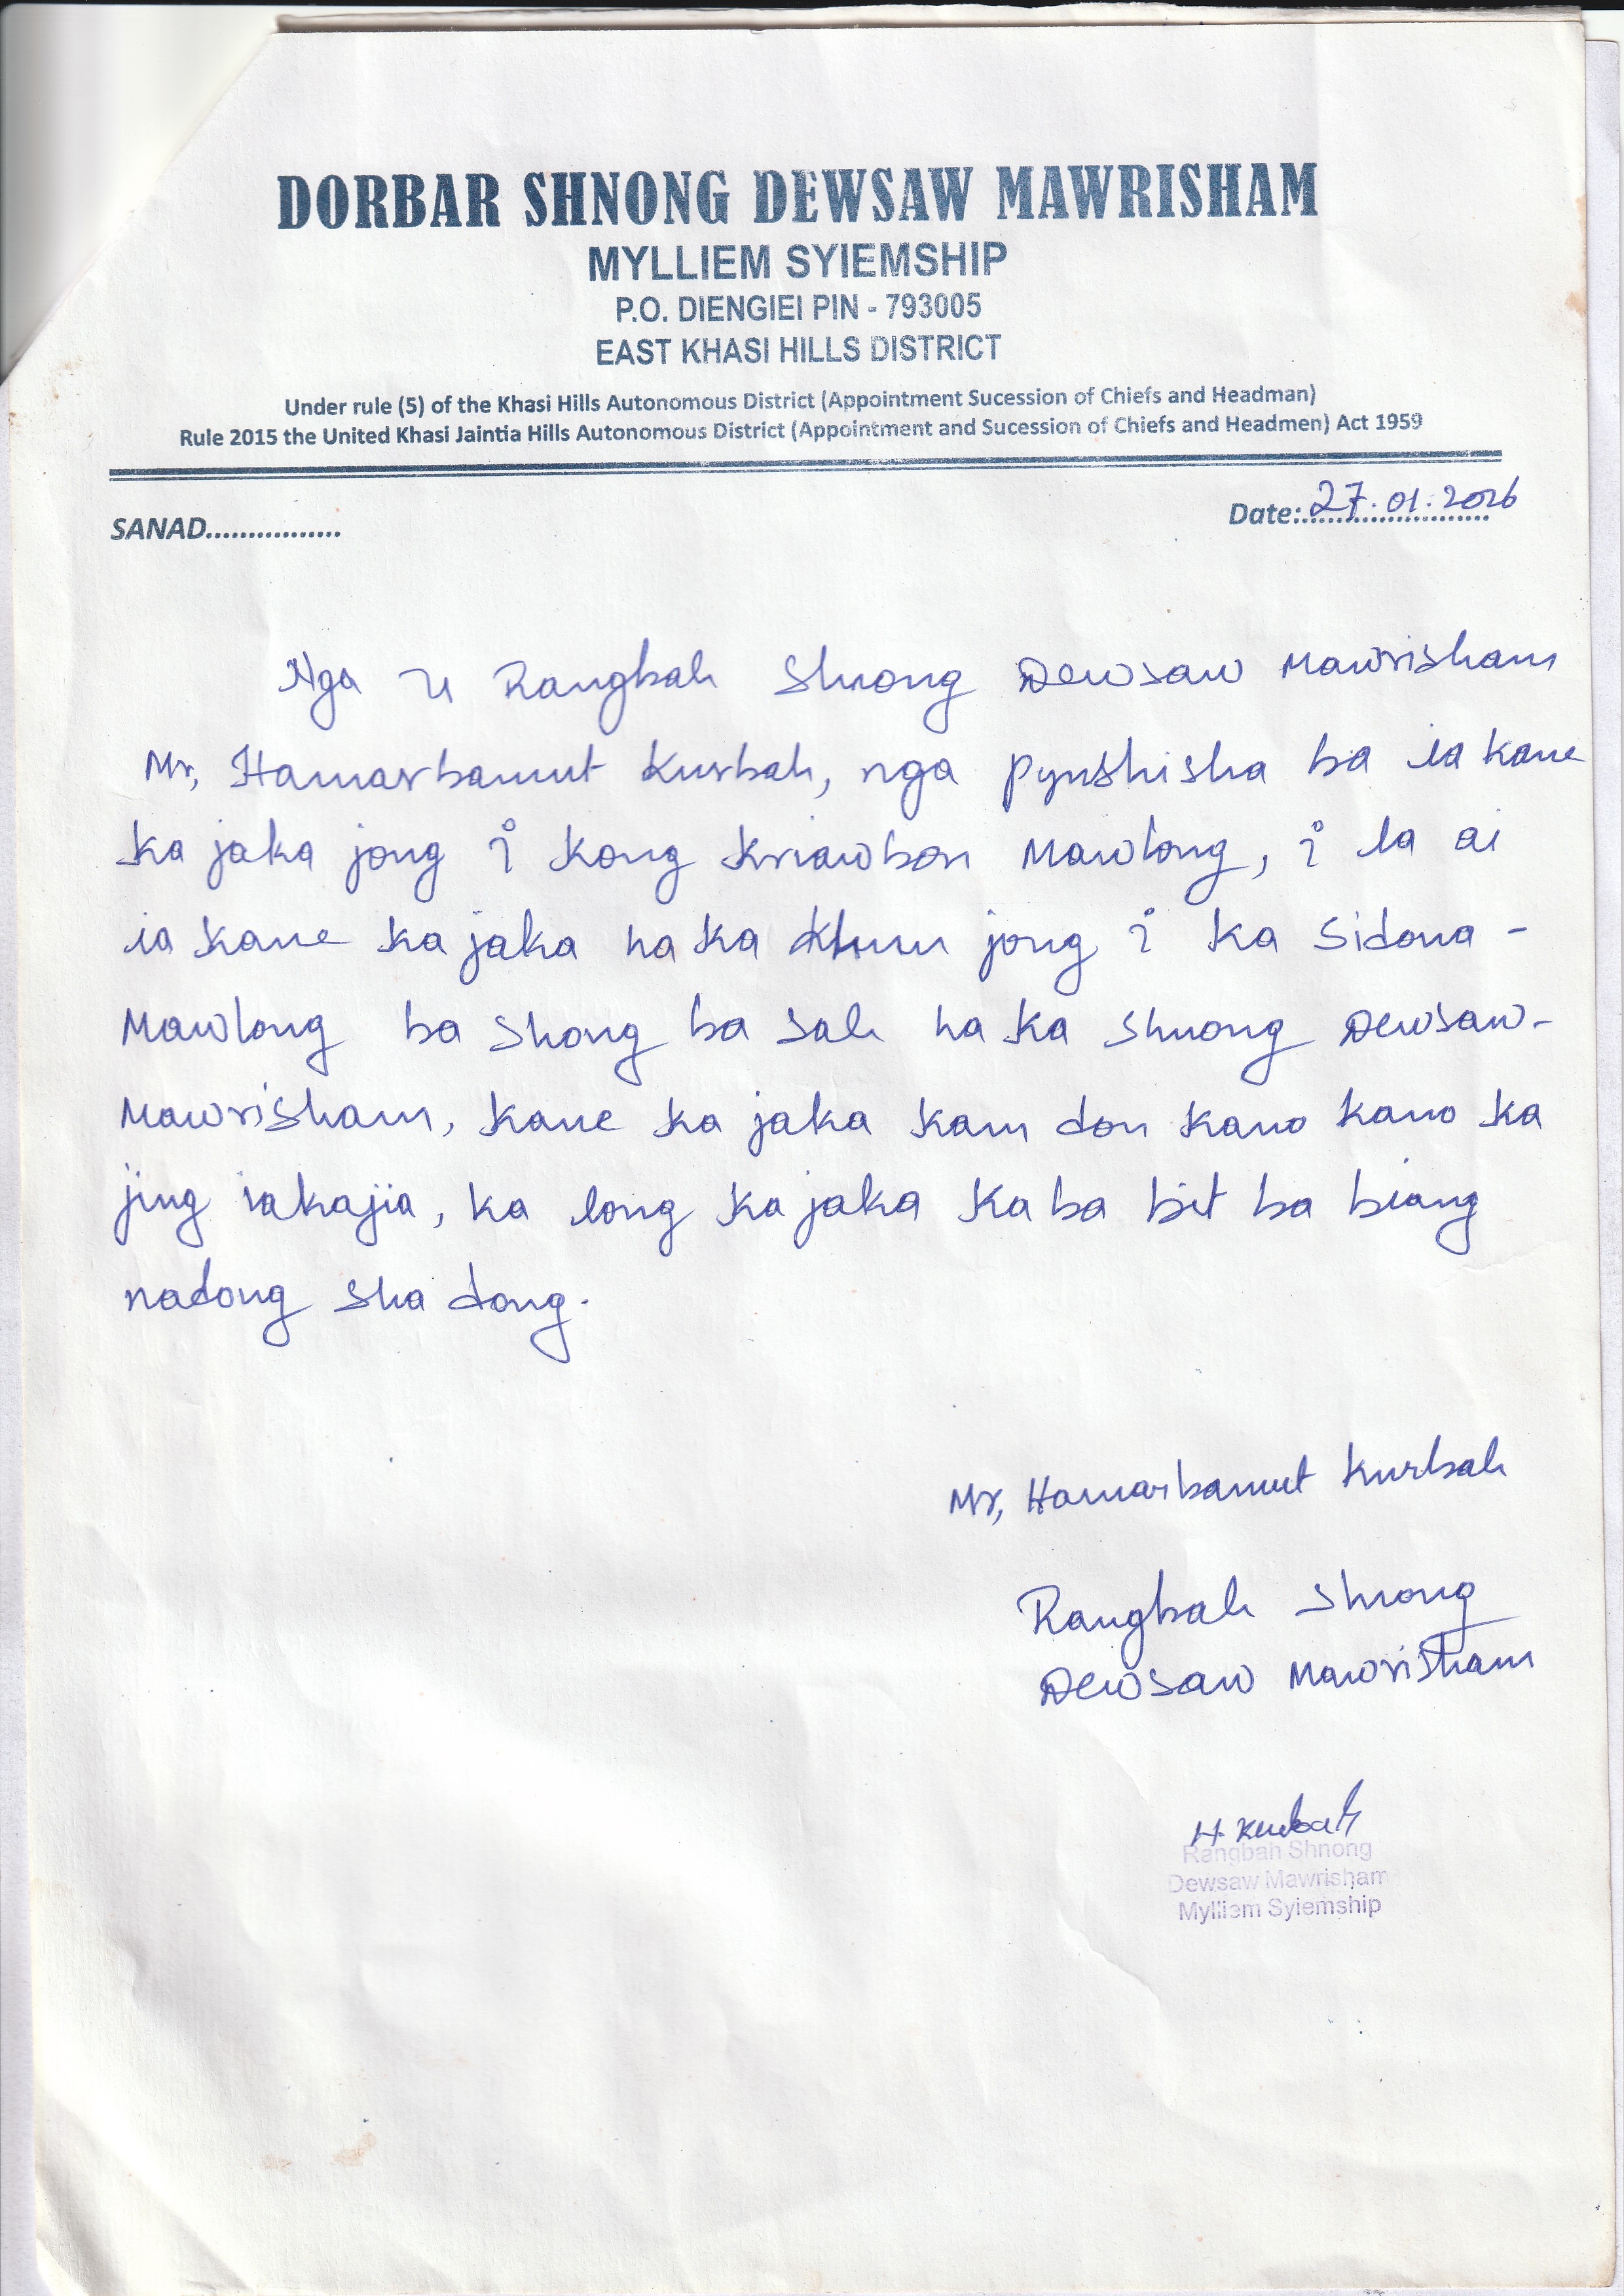 DORBAR SHNONG DEWSAW MAWRISHAM
MYLLIEM SYIEMSHIP
P.O. DIENGIEI PIN - 793005
EAST KHASI HILLS DISTRICT
Under rule (5) of the Khasi Hills Autonomous District (Appointment Sucession of Chiefs and Headman)
Rule 2015 the United Khasi Jaintia Hills Autonomous District (Appointment and Sucession of Chiefs and Headmen) Act 1959
SANAD................ Date: 27.01.2026
Nga U Rangbah Shnong Dewsaw Mawrisham
Mr, Hamarbamut Kurbah, nga pynshisha ba ia kane
ka jaka jong i Kong Kriawbon Mawlong, i la ai
ia kane ka jaka ha ka khun jong i ka Sidona -
Mawlong ba shong ba sah ha ka shnong Dewsaw-
Mawrisham, kane ka jaka kam don kano kano ka
jing iakajia, ka long ka jaka kaba bit ba biang
nadong sha dong.
Mr, Hamarbamut Kurbah
Rangbah Shnong
Dewsaw Mawrisham
H. Kurbah
Rangbah Shnong
Dewsaw Mawrisham
Mylliem Syiemship